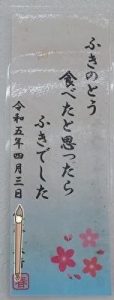 ふきのとう
食べたと思ったら
ふきでした
令和五年四月三日
春